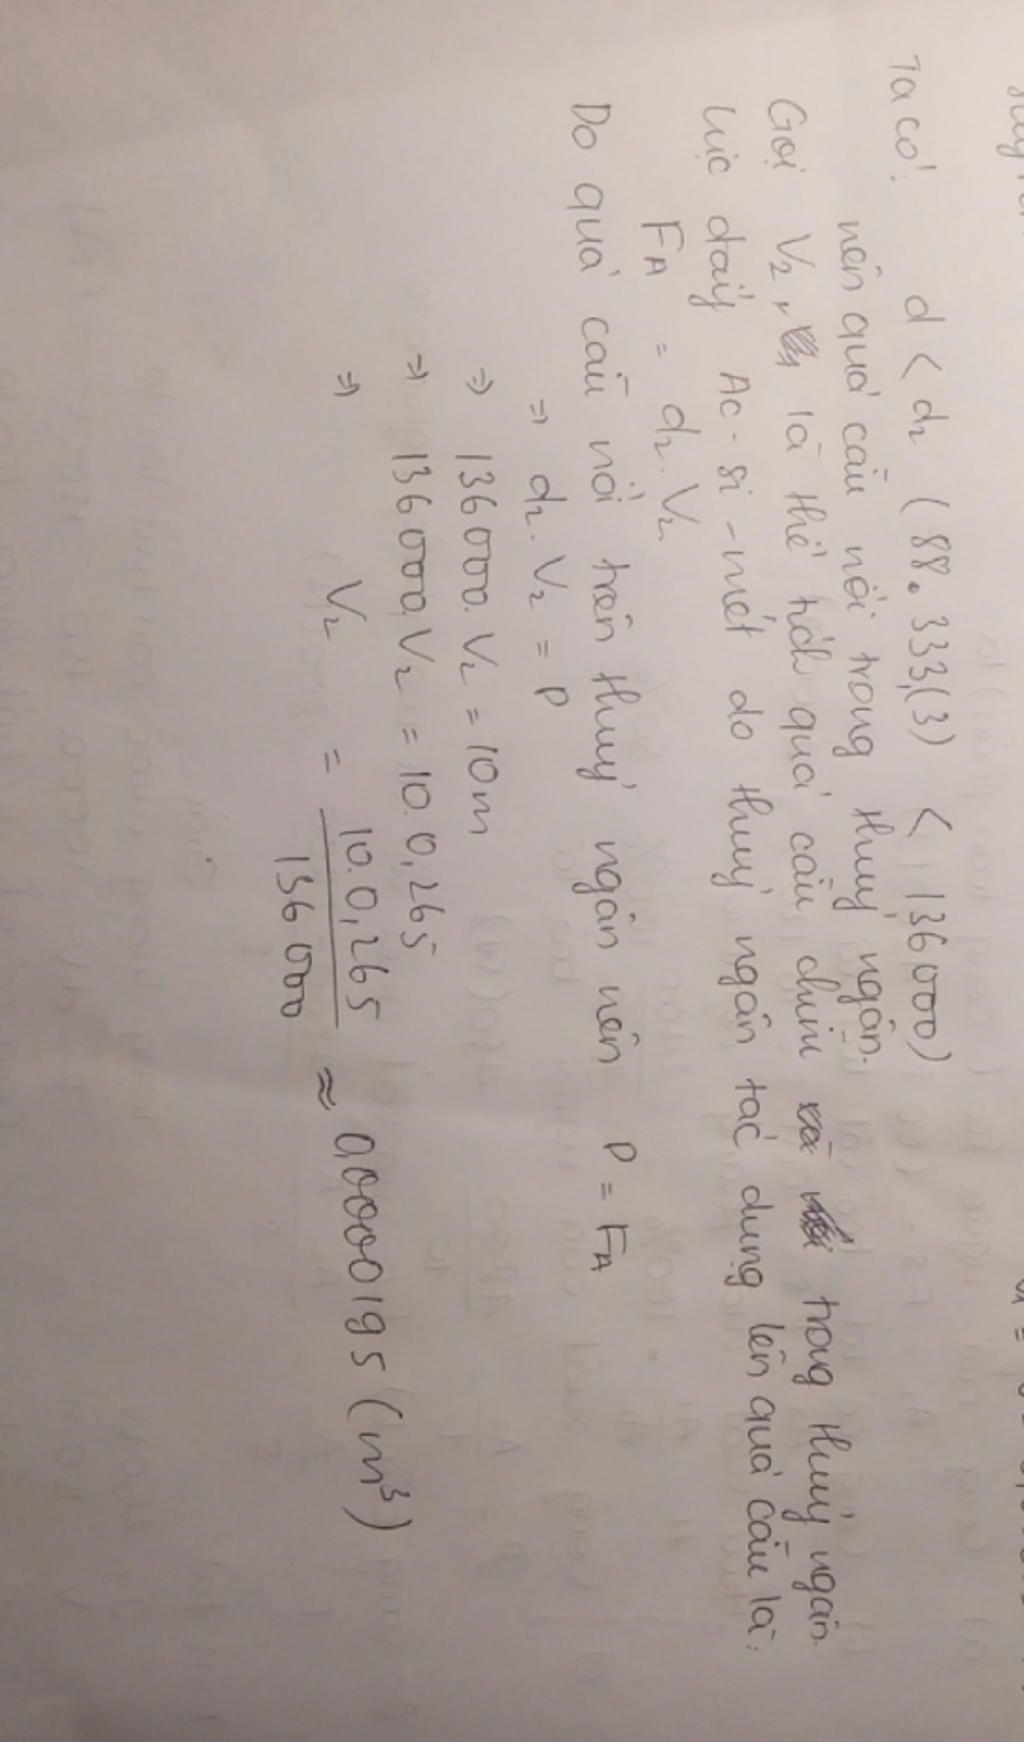 Ta có: d < d2 (88.333,(3) < 136000)
nên quả cầu nổi trong thuỷ ngân.
Gọi V2, là thể tích quả cầu chìm trong thuỷ ngân.
lực đẩy Ac-si-mét do thuỷ ngân tác dụng lên quả cầu là:
FA = d2.V2
Do quả cầu nổi trên thuỷ ngân nên P = FA
=> d2.V2 = P
=> 136000.V2 = 10m
=> 136000.V2 = 10.0,265
=> V2 = 10.0,265 / 136000 ≈ 0,0000195 (m³)